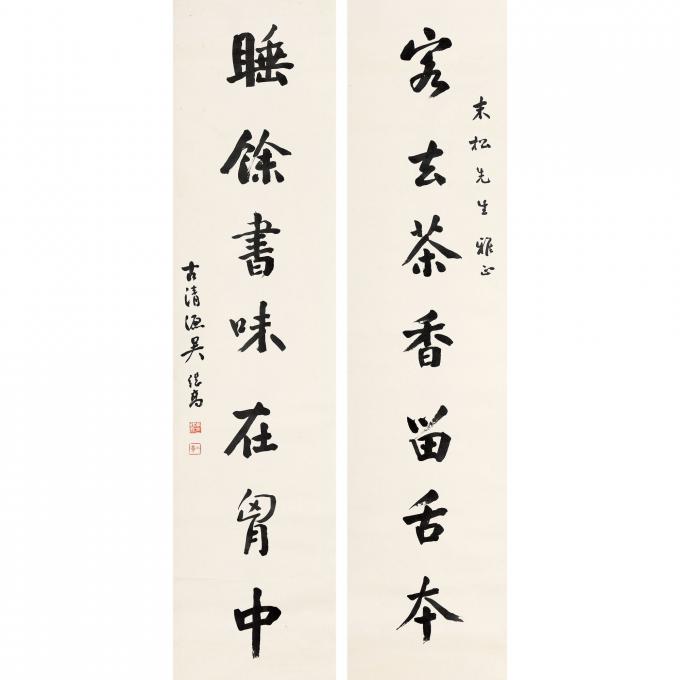 末松先生雅正
客去茶香留舌本
睡餘書味在胷中
古清源吳高